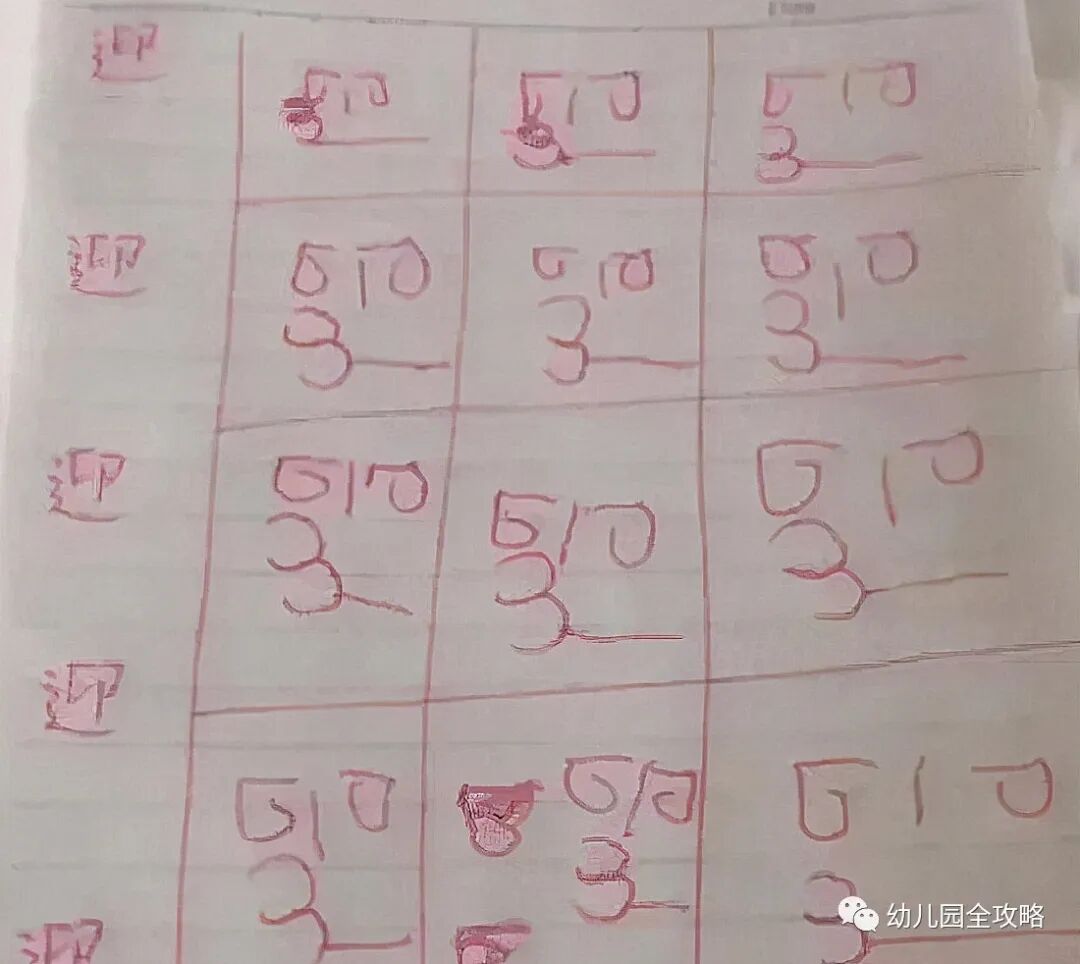 迎
迎 迎 迎
迎
迎 迎 迎
迎
迎 迎 迎
迎
迎 迎 迎
迎
幼儿园全攻略